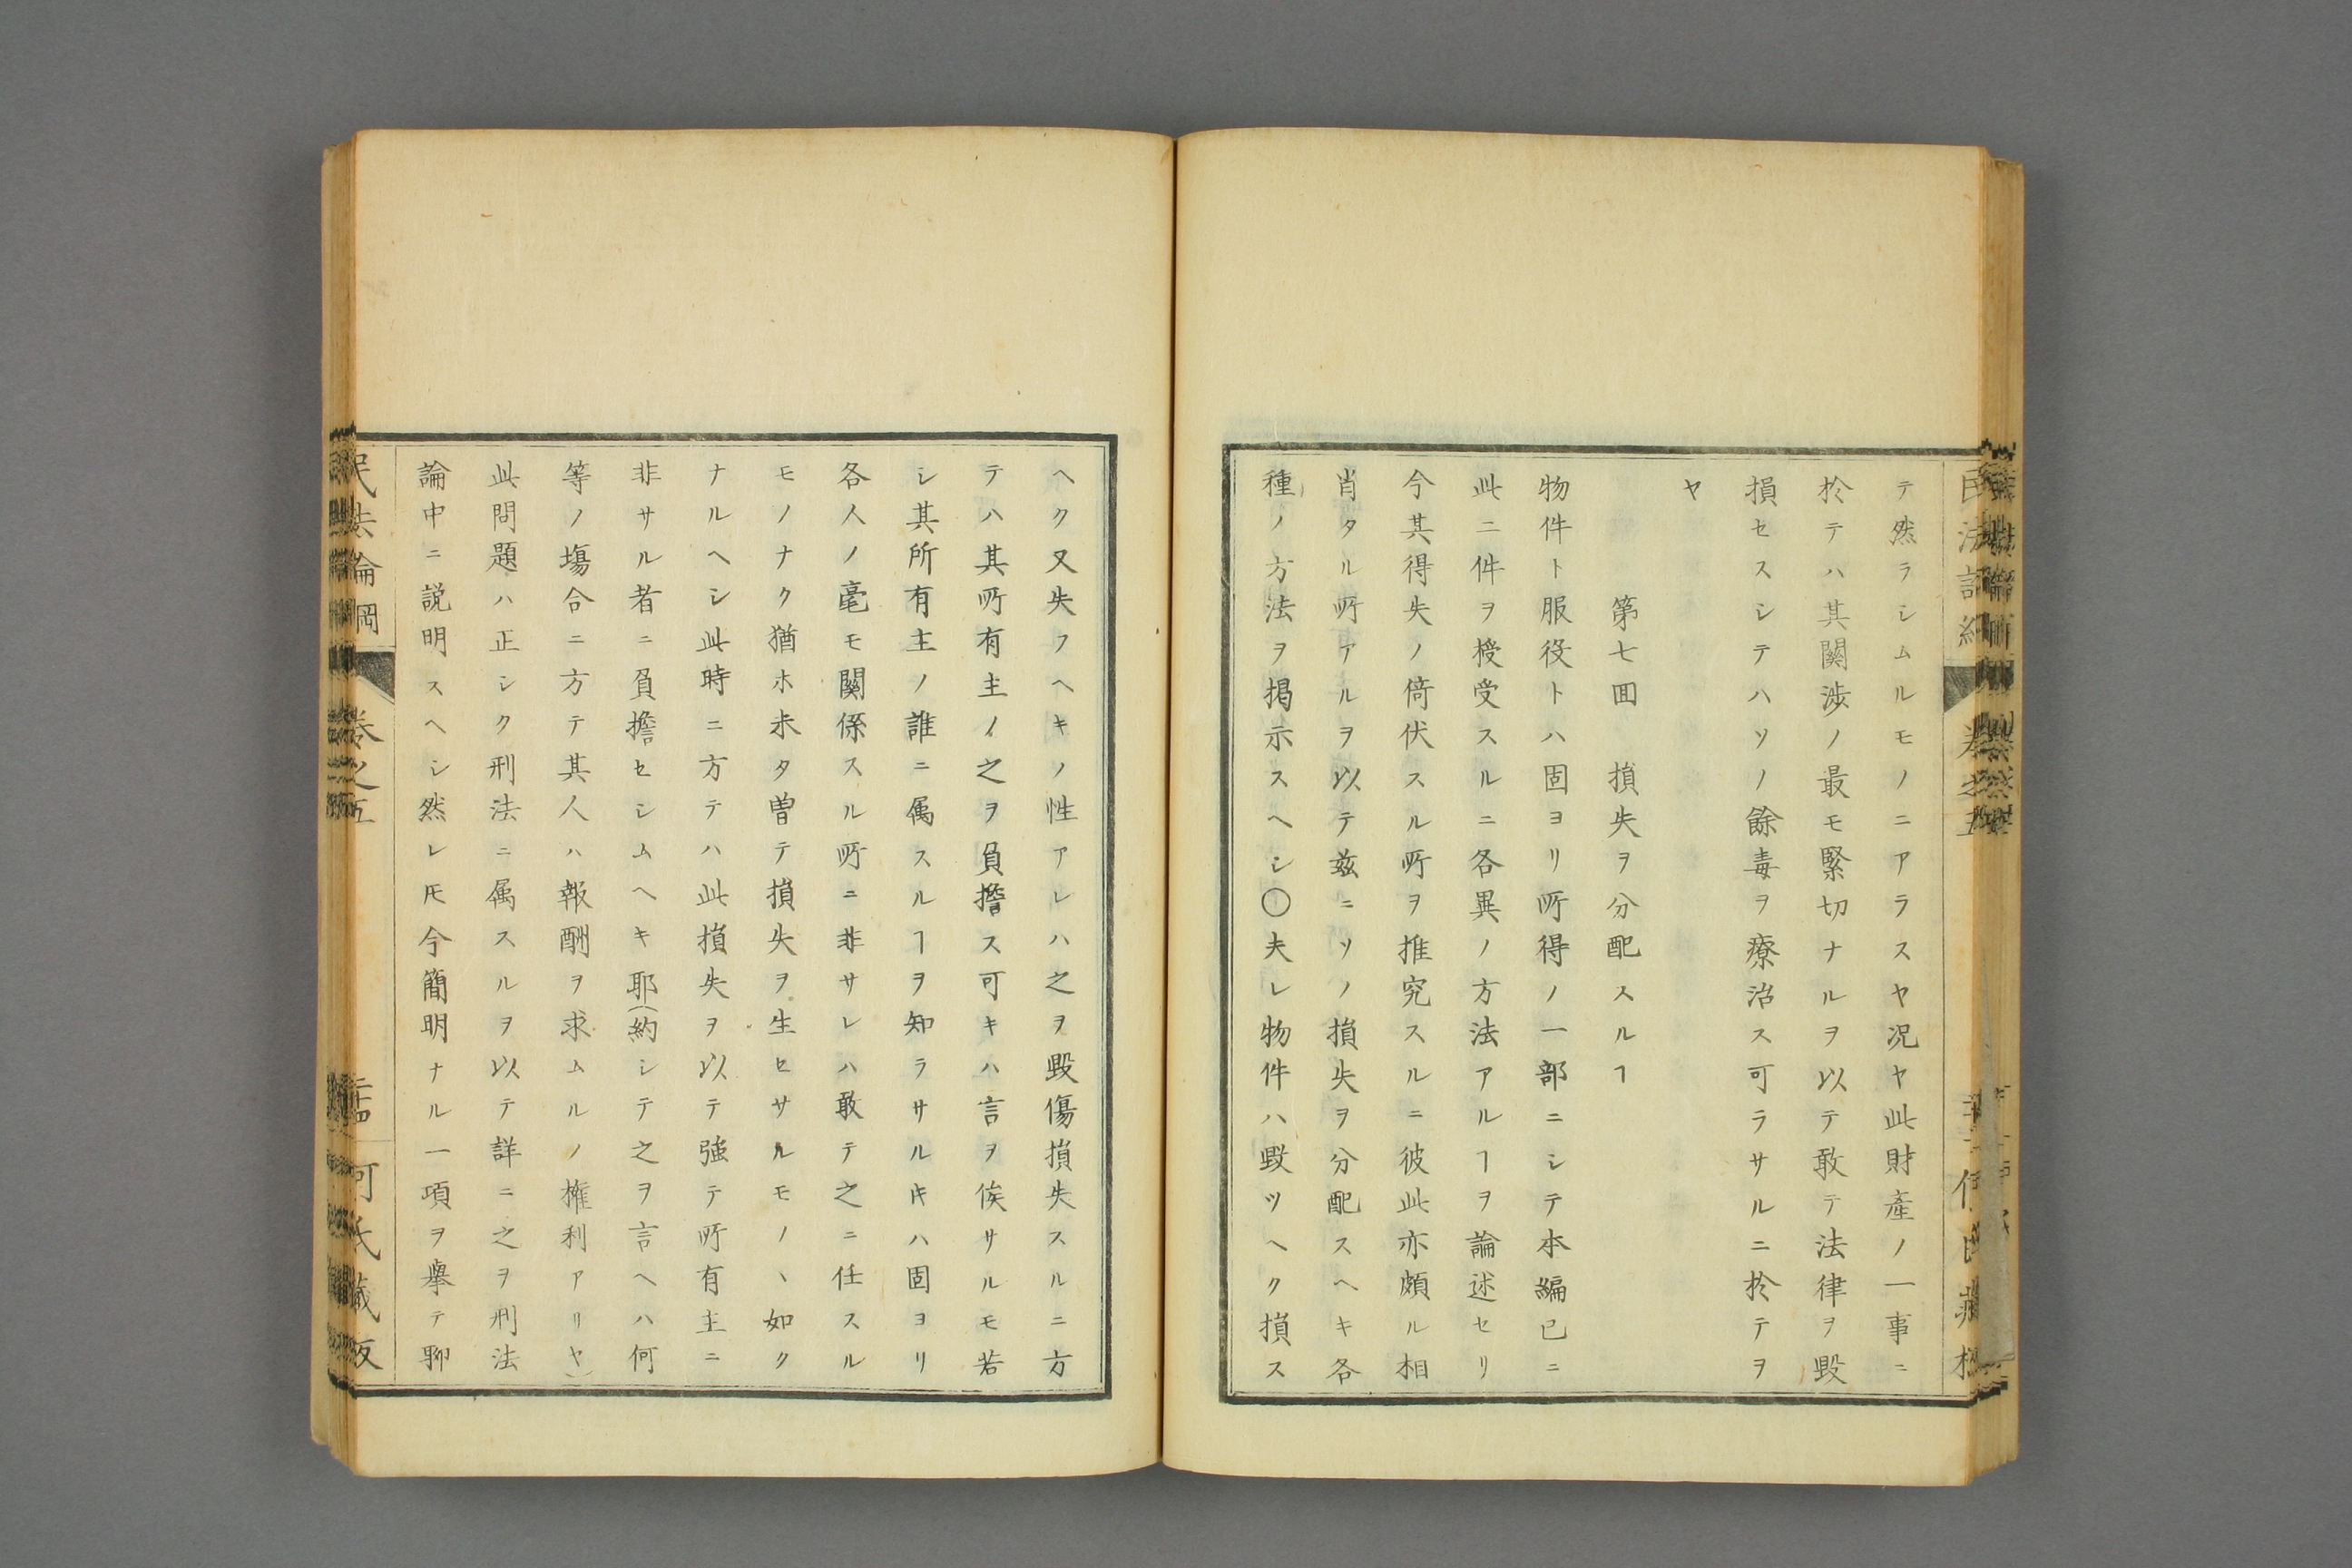 テ然ラシムルモノニアラスヤ况ヤ此財產ノ一事ニ
於テハ其関渉ノ最モ緊切ナルヲ以テ敢テ法律ヲ毀
損セスシテハソノ餘毒ヲ療治ス可ラサルニ於テヲ
ヤ
第七囬 損失ヲ分配スルヿ
物件ト服役トハ固ヨリ所得ノ一部ニシテ本編已ニ
此二件ヲ授受スルニ各異ノ方法アルヿヲ論述セリ
今其得失ノ倚伏スル所ヲ推究スルニ彼此亦頗ル相
肖タル所アルヲ以テ玆ニソノ損失ヲ分配スヘキ各
種ノ方法ヲ掲示スヘシ〇夫レ物件ハ毀ツヘク損ス
ヘク又失フヘキノ性アレハ之ヲ毀傷損失スルニ方
テハ其所有主ノ之ヲ負擔ス可キハ言ヲ俟サルモ若
シ其所有主ノ誰ニ属スルヿヲ知ラサルキハ固ヨリ
各人ノ毫モ関係スル所ニ非サレハ敢テ之ニ任スル
モノナク猶ホ未タ曽テ損失ヲ生セサルモノヽ如ク
ナルヘシ此時ニ方テハ此損失ヲ以テ強テ所有主ニ
非サル者ニ負擔セシムヘキ耶(約シテ之ヲ言ヘハ何
等ノ塲合ニ方テ其人ハ報酬ヲ求ムルノ権利アリヤ)
此問題ハ正シク刑法ニ属スルヲ以テ詳ニ之ヲ刑法
論中ニ説明スヘシ然レ𪜈今簡明ナル一項ヲ擧テ聊
民法論綱 巻之五 何氏蔵板